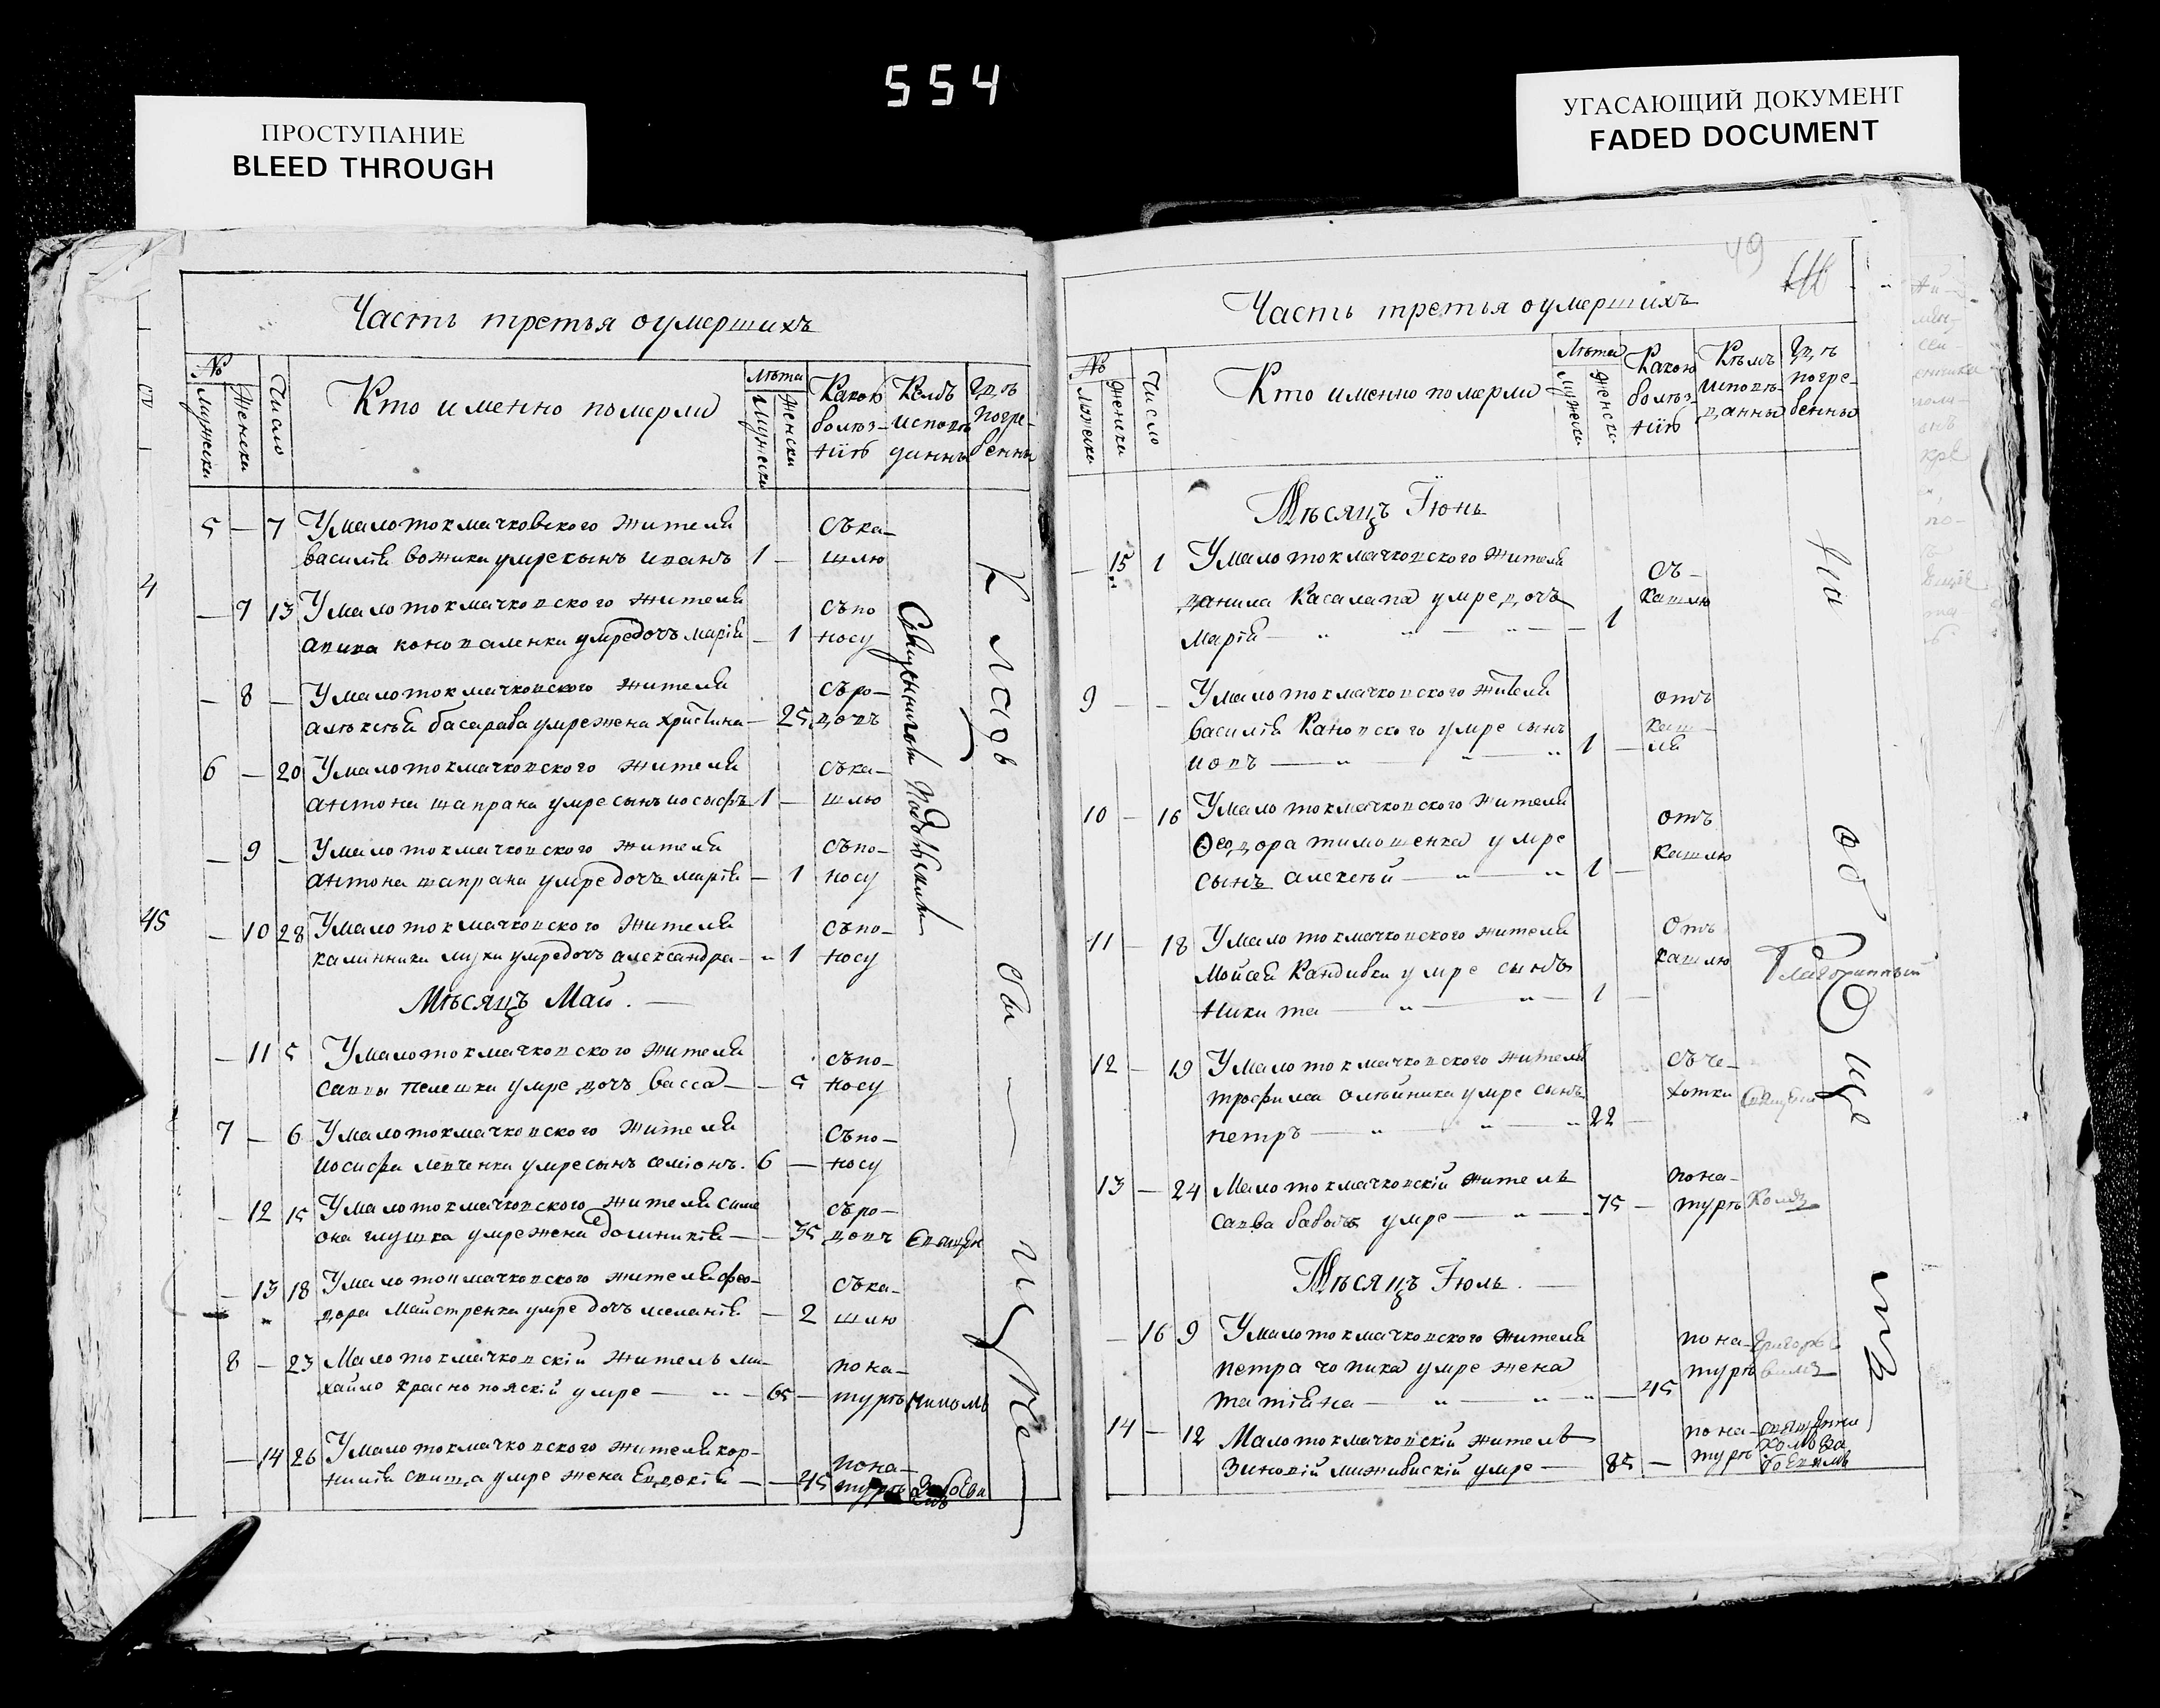 554
ПРОСТУПАНИЕ
BLEED THROUGH
УГАСАЮЩИЙ ДОКУМЕНТ
FADED DOCUMENT
Часть третья оумершихъ
№
Мужески
Женски
Число
Кто именно померли
Лѣта
Мужески
Женски
Какою
болѣз-
нiю
Кемъ
исповѣ
данны
Гдѣ
погре-
бенны
5 — 7 Умалотокмачковского жителя
василія вожики умре сынъ иванъ 1 —
съка-
шлю
— 7 13 Умалотокмачковского жителя
коноваленки умре дочъ марія — 1
съпо
носу
— 8 — Умалотокмачковского жителя
алѣксѣя басараба умре жена христина — 25
съро-
довъ
6 — 20 Умалотокмачковского жителя
антона шапрана умре сынъ иосыфъ 1 —
съка-
шлю
— 9 — Умалотокмачковского жителя
антона шапрана умре дочъ марія — 1
съпо-
носу
— 10 28 Умалотокмачковского жителя
калинники луки умре дочъ александра — 1
съпо-
носу
Мѣсяцъ Май. —
— 11 5 Умалотокмачковского жителя
саввы пелешки умре дочъ васса — 5
съпо-
носу
7 — 6 Умалотокмачковского жителя
иосифа левченки умре сынъ семіонъ. 6 —
съпо-
носу
— 12 15 Умалотокмачковского жителя симе
она глушка умре жена домникія — 35
съро-
довъ
— 13 18 Умалотокмачковского жителя фео-
дора Майстренка умре дочъ меланія — 2
съка-
шлю
8 — 23 Малотокмачковскій житель ми-
хайло краснопояскій умре — 65 —
пона-
турѣ
— 14 26 Умалотокмачковского жителя кор-
нилія умре жена Евдокія — 45
пона-
турѣ
Кладби
49
Часть третья оумершихъ
№
Женски
Число
Кто именно померли
Лѣта
Мужески
Женски
Какою
болѣз-
нiю
Кѣмъ
исповѣ-
данны
Гдѣ
погре-
бенны
Мѣсяцъ Іюнь
— 15 1 Умалотокмачковского жителя
данила Касалапа умре дочъ
марія — 1
съ-
кашлю
9 — — Умалотокмачковского жителя
василія Кановского умре сынъ
иовъ — 1 —
отъ
каш-
ля
10 — 16 Умалотокмачковского жителя
Ѳеодора тимошенка умре
сынъ алексѣй — 1 —
отъ
кашлю
11 — 18 Умалотокмачковского жителя
Мойсея Кандивки умре сынъ
Никита — 1 —
Отъ
кашлю
12 — 19 Умалотокмачковского жителя
трофима олѣйника умре сынъ
петръ — 22 —
съче-
хотки
13 — 24 Малотокмачковскій житель
савва бабычъ умре — 75 —
пона-
турѣ
Мѣсяцъ Іюль. —
— 16 9 Умалотокмачковского жителя
петра чопика умре жена
татіяна — 45
пона-
турѣ
14 — 12 Малотокмачковскій житель
Зиновій миживискій умре — 85 —
пона-
турѣ